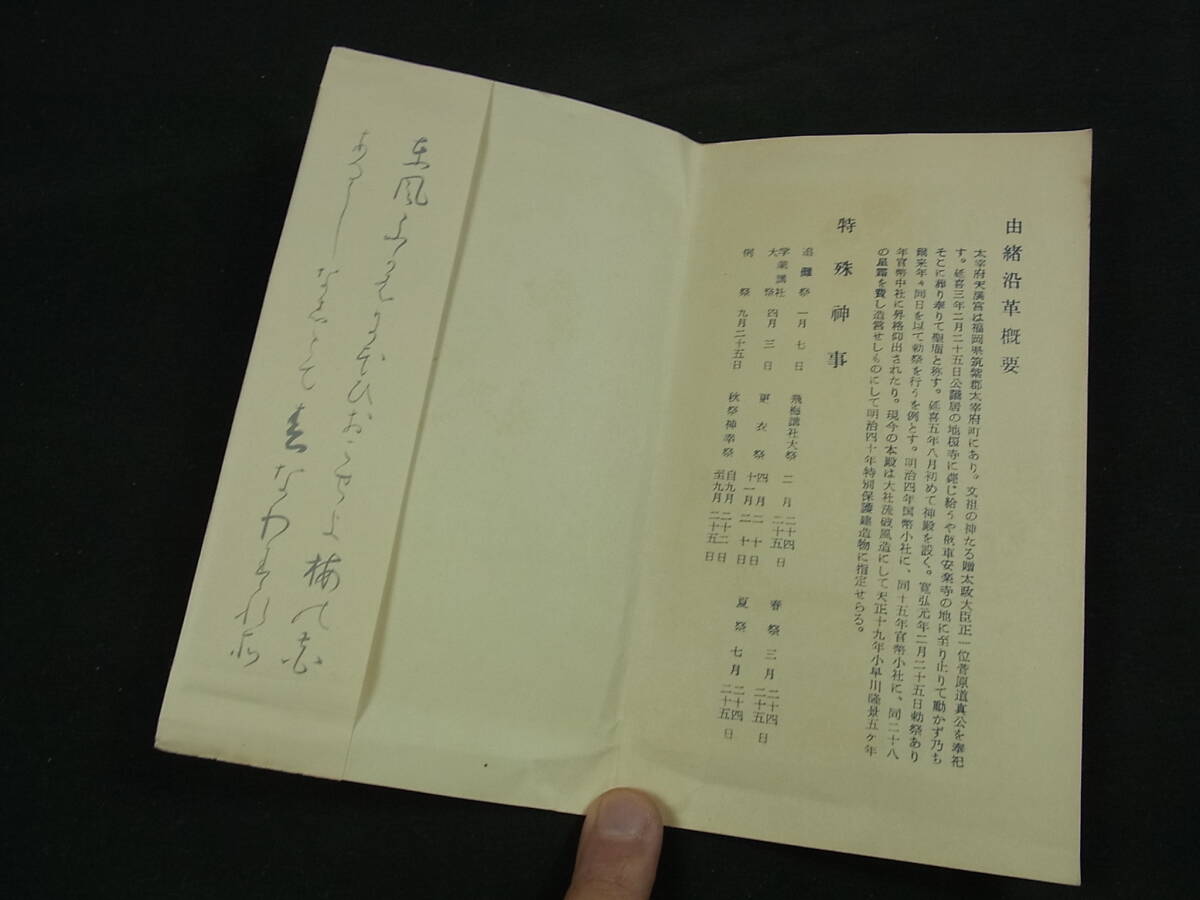 由緒沿革概要
太宰府天満宮は福岡県筑紫郡太宰府町にあり。文祖の神なる贈太政大臣正一位菅原道真公を奉祀
す。延喜三年二月二十五日公謫居の地榎寺に薨じ給うや柩車安楽寺の地に至り止りて動かず乃ち
そこに葬り奉りて聖廟と称す。延喜五年八月初めて神殿を設く。寛弘元年二月二十五日勅祭あり
爾来年々同日を以て勅祭を行うを例とす。明治四年国幣小社に、同十五年官幣小社に、同二十八
年官幣中社に昇格仰出されたり。現今の本殿は大社流破風造にして天正十九年小早川隆景五ケ年
の星霜を費し造営せしものにして明治四十年特別保護建造物に指定せらる。
特殊神事
追儺祭 一月七日
飛梅講社大祭 二月二十四 二十五日
春祭 三月二十四 二十五日
学業講社大祭 四月三日
更衣祭 四月二十日 十一月二十日
夏祭 七月二十四 二十五日
例祭 九月二十五日
秋祭神幸祭 自九月二十二日 至九月二十五日
東風ふかはにほひおこせよ梅の花
あるしなしとて春なわすれそ